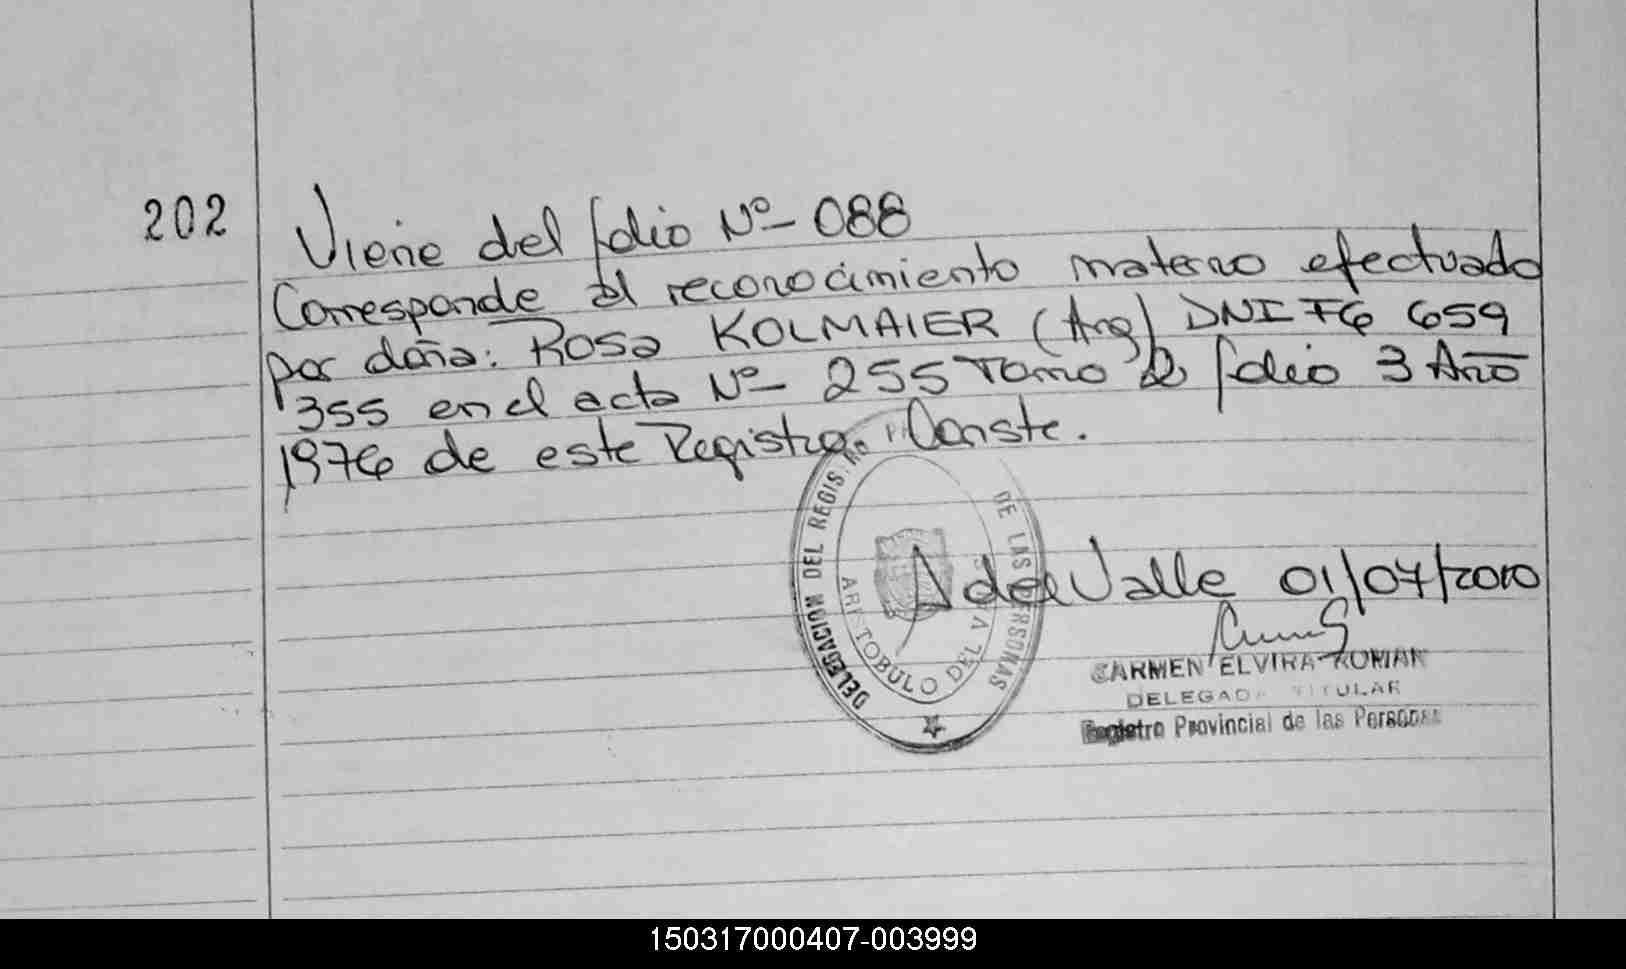 202
Viene del folio Nº- 088
Corresponde al reconocimiento materno efectuado
por doña: Rosa KOLMAIER (Arg) DNI F6 659
355 en el acta Nº- 255 Tomo 2 folio 3 Año
1976 de este Registro. Conste.
DELEGACION DEL REGISTRO DE LAS PERSONAS
ARISTOBULO DEL VALLE
A del Valle 01/07/2010
CARMEN ELVIRA ROMAN
DELEGADA TITULAR
Registro Provincial de las Personas
150317000407-003999